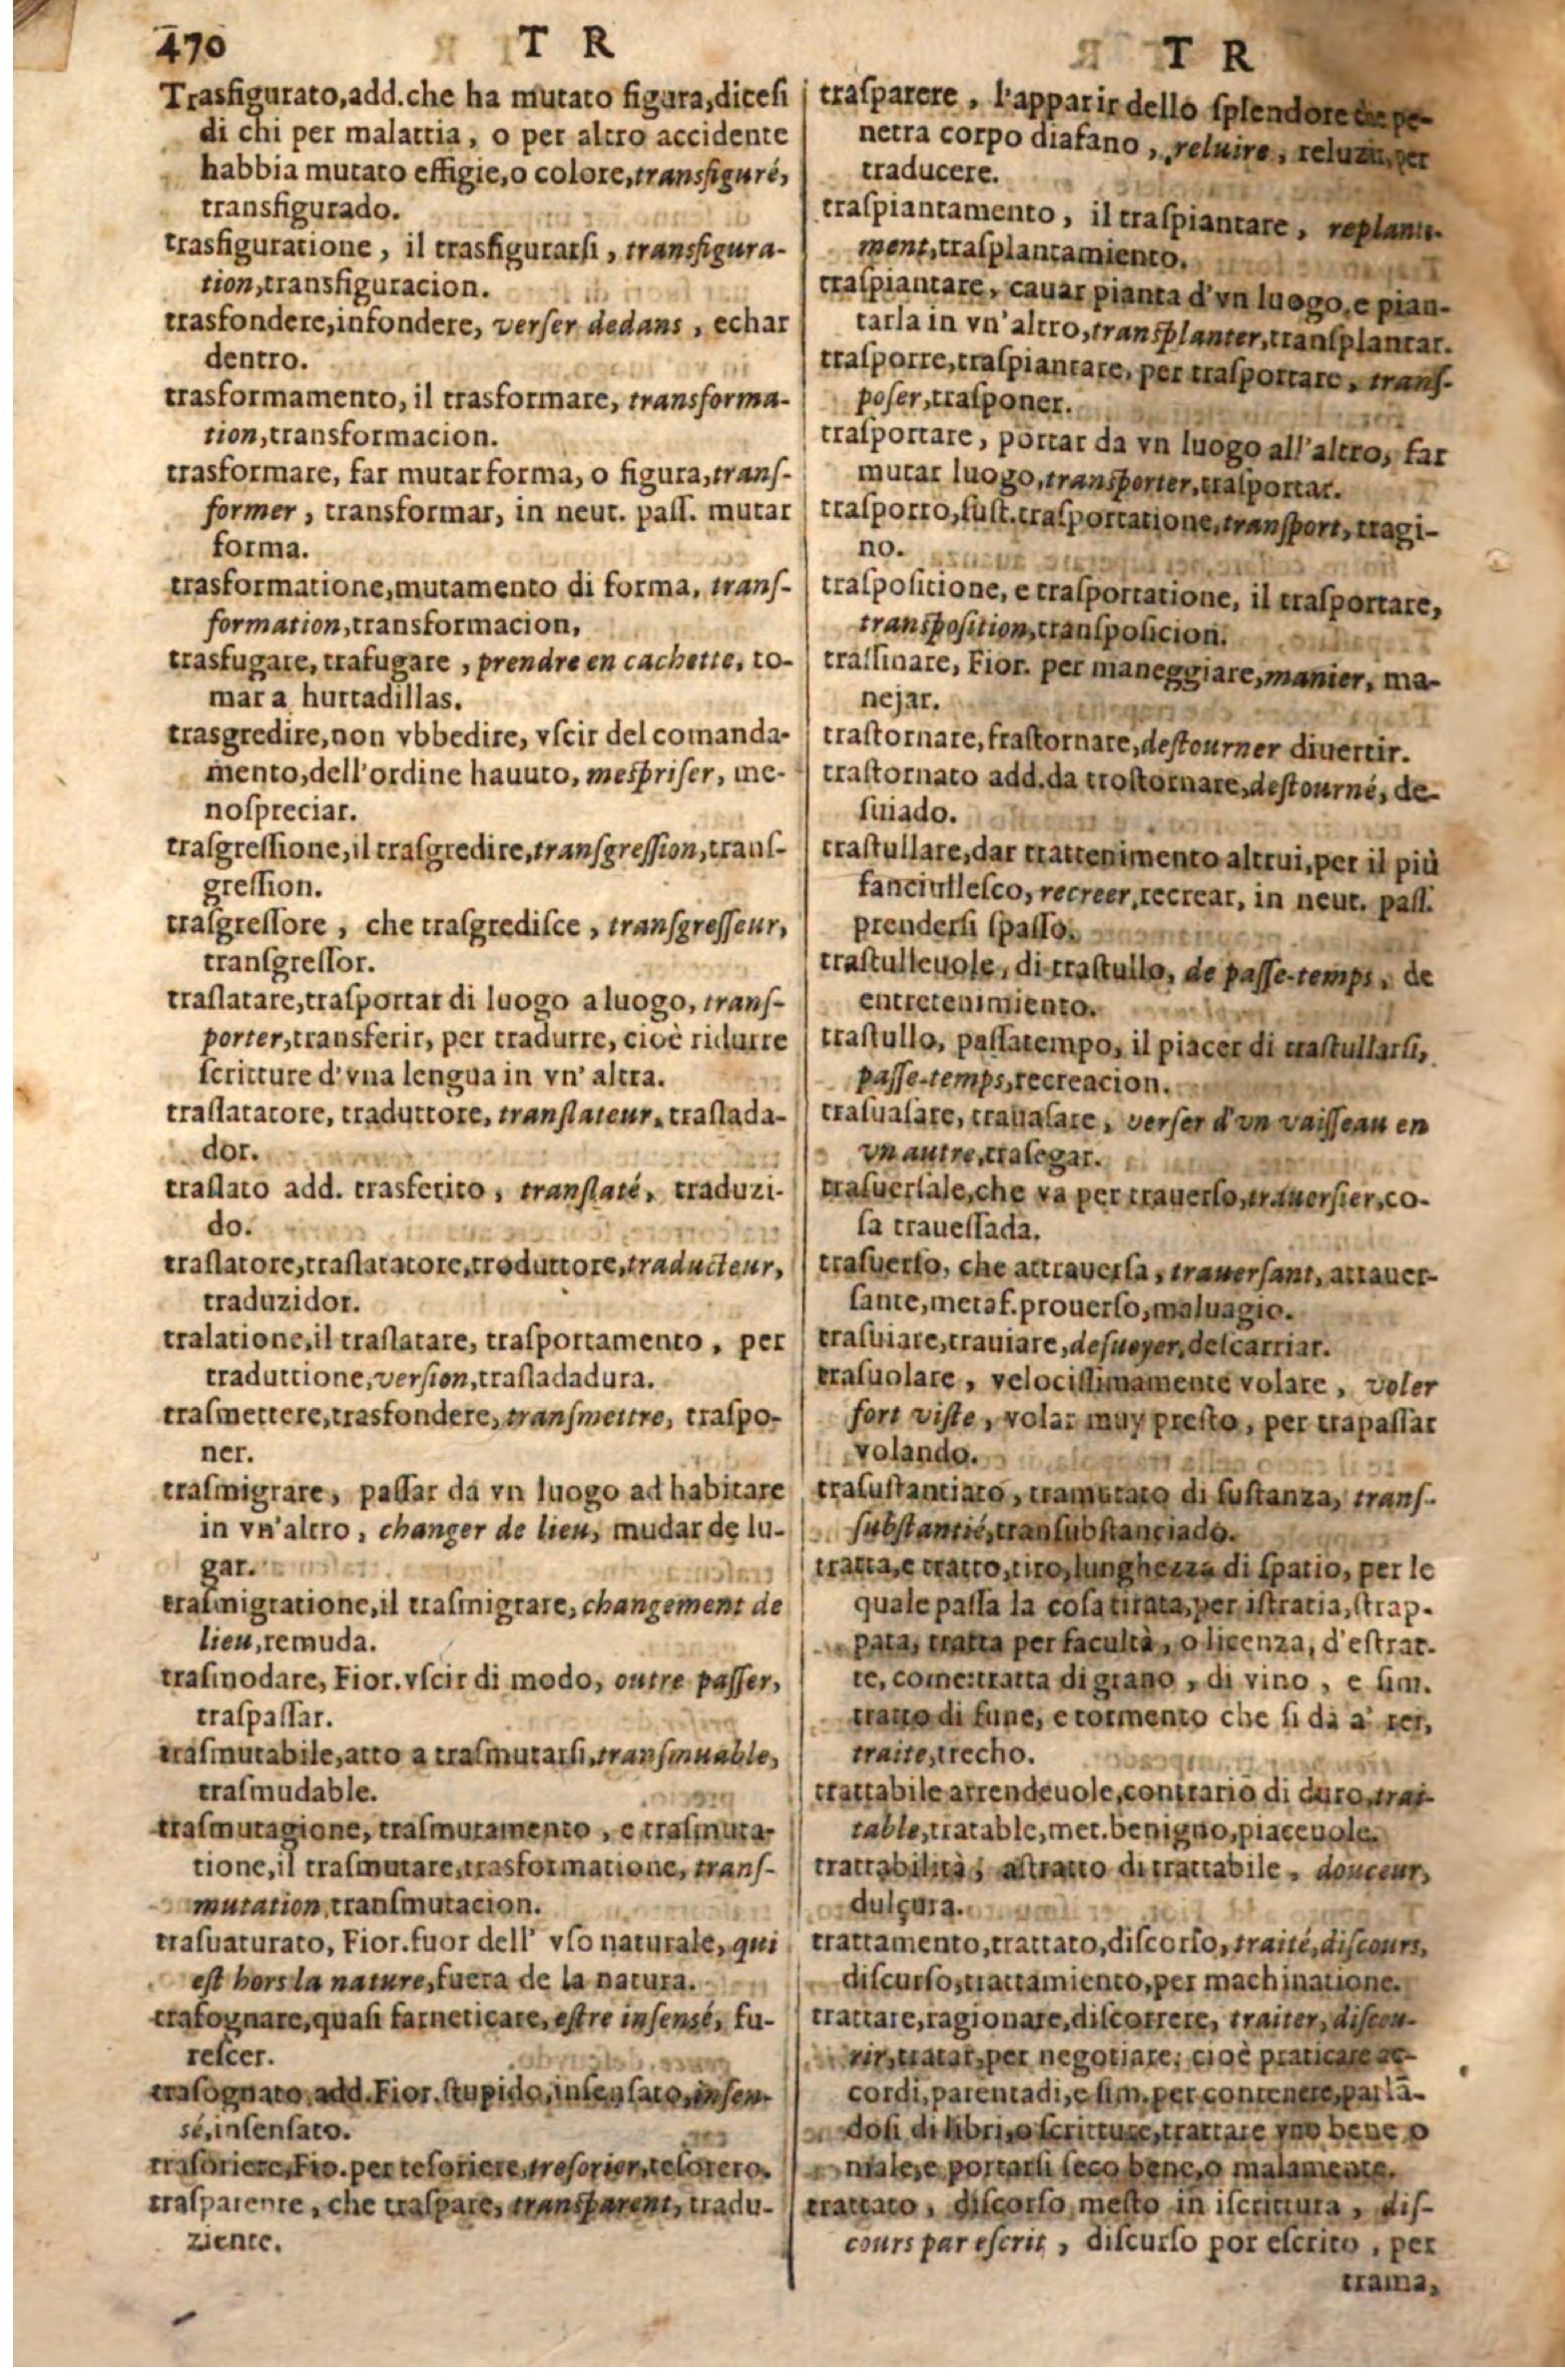 470 T R
Trasfigurato,add.che ha mutato figura,dicesi
di chi per malattia, o per altro accidente
habbia mutato effigie,o colore,transfiguré,
transfigurado.
trasfiguratione, il trasfigurarsi, transfigura-
tion,transfiguracion.
trasfondere,infondere, verſer dedans, echar
dentro.
trasformamento, il trasformare, transforma-
tion,transformacion.
trasformare, far mutar forma, o figura,tranſ-
former, transformar, in neut. paſſ. mutar
forma.
trasformatione,mutamento di forma, tranſ-
formation,transformacion,
trasfugare, trafugare, prendre en cachette, to-
mar a hurtadillas.
trasgredire,non vbbedire, vſcir del comanda-
mento,dell'ordine hauuto, meſpriſer, me-
noſpreciar.
traſgreſſione,il traſgredire,tranſgreſſion,tranſ-
greſſion.
traſgreſſore, che traſgrediſce, tranſgreſſeur,
tranſgreſſor.
traſlatare,traſportar di luogo a luogo, tranſ-
porter,transferir, per tradurre, cioè ridurre
ſcritture d'vna lengua in vn' altra.
traſlatatore, traduttore, tranſlateur, traſlada-
dor.
traſlato add. trasferito, tranſlaté, traduzi-
do.
traſlatore,traſlatatore,troduttore,traducteur,
traduzidor.
tralatione,il traſlatare, traſportamento, per
traduttione,verſion,traſladadura.
traſmettere,trasfondere, tranſmettre, traſpo-
ner.
traſmigrare, paſſar da vn luogo ad habitare
in vn'altro, changer de lieu, mudar de lu-
gar.
traſmigratione,il traſmigrare, changement de
lieu,remuda.
traſmodare, Fior.vſcir di modo, outre paſſer,
traſpaſſar.
traſmutabile,atto a traſmutarſi,tranſmuable,
traſmudable.
traſmutagione, traſmutamento, e traſmuta-
tione,il traſmutare,trasformatione, tranſ-
mutation,tranſmutacion.
traſuaturato, Fior.fuor dell' vſo naturale, qui
eſt hors la nature,fuera de la natura.
traſognare,quaſi farneticare, eſtre inſensé, fu-
reſcer.
traſognato add.Fior.ſtupido,inſenſato,inſen-
sé,inſenſato.
traſoriere,Fio.per teſoriere,treſorier,teſorero.
traſparente, che traſpare, tranſparent, tradu-
ziente.
T R
traſparere, l'apparir dello ſplendore che pe-
netra corpo diafano, reluire, reluzir, per
traducere.
traſpiantamento, il traſpiantare, replante-
ment,traſplantamiento.
traſpiantare, cauar pianta d'vn luogo,e pian-
tarla in vn'altro,tranſplanter,tranſplantar.
traſporre,traſpiantare, per traſportare, tranſ-
poſer,traſponer.
traſportare, portar da vn luogo all'altro, far
mutar luogo,tranſporter,traſportar.
traſporto,ſuſt.traſportatione,tranſport, tragi-
no.
traſpoſitione, e traſportatione, il traſportare,
tranſpoſition,tranſpoſicion.
traſſinare, Fior. per maneggiare,manier, ma-
nejar.
traſtornare,fraſtornare,deſtourner diuertir.
traſtornato add.da troſtornare,deſtourné, de-
ſuiado.
traſtullare,dar trattenimento altrui,per il più
fanciulleſco, recreer,recrear, in neut. paſſ.
prenderſi ſpaſſo.
traſtulleuole, di traſtullo, de paſſe-temps, de
entretenimiento.
traſtullo, paſſatempo, il piacer di traſtullarſi,
paſſe-temps,recreacion.
traſuaſare, trauaſare, verſer d'vn vaiſſeau en
vn autre,traſegar.
traſuerſale,che va per trauerſo,trauerſier,co-
ſa traueſſada.
traſuerſo, che attrauerſa, trauerſant, attauer-
ſante,metaf.prouerſo,maluagio.
traſuiare,trauiare,deſuoyer,deſcarriar.
traſuolare, velociſſimamente volare, voler
fort viſte, volar muy preſto, per trapaſſar
volando.
traſuſtantiato, tramutato di ſuſtanza, tranſ-
ſubſtantié,tranſubſtanciado.
tratta,e tratto,tiro,lunghezza di ſpatio, per le
quale paſſa la coſa tirata,per iſtratia,ſtrap-
pata, tratta per facultà, o licenza, d'eſtrar-
re, come:tratta di grano, di vino, e ſim.
tratto di fune, e tormento che ſi dà a' rei,
traite,trecho.
trattabile arrendeuole,contrario di duro,trai-
table,tratable,met.benigno,piaceuole.
trattabilità, aſtratto di trattabile, douceur,
dulçura.
trattamento,trattato,diſcorſo,traité,diſcours,
diſcurſo,trattamiento,per machinatione.
trattare,ragionare,diſcorrere, traiter, diſcou-
rir,tratar,per negotiare, cioè praticare ac-
cordi,parentadi,e ſim.per contenere,parlã-
doſi di libri,o ſcritture,trattare vno bene o
male,e portarſi ſeco bene,o malamente.
trattato, diſcorſo meſſo in iſcrittura, diſ-
cours par eſcrit, diſcurſo por eſcrito, per
trama,